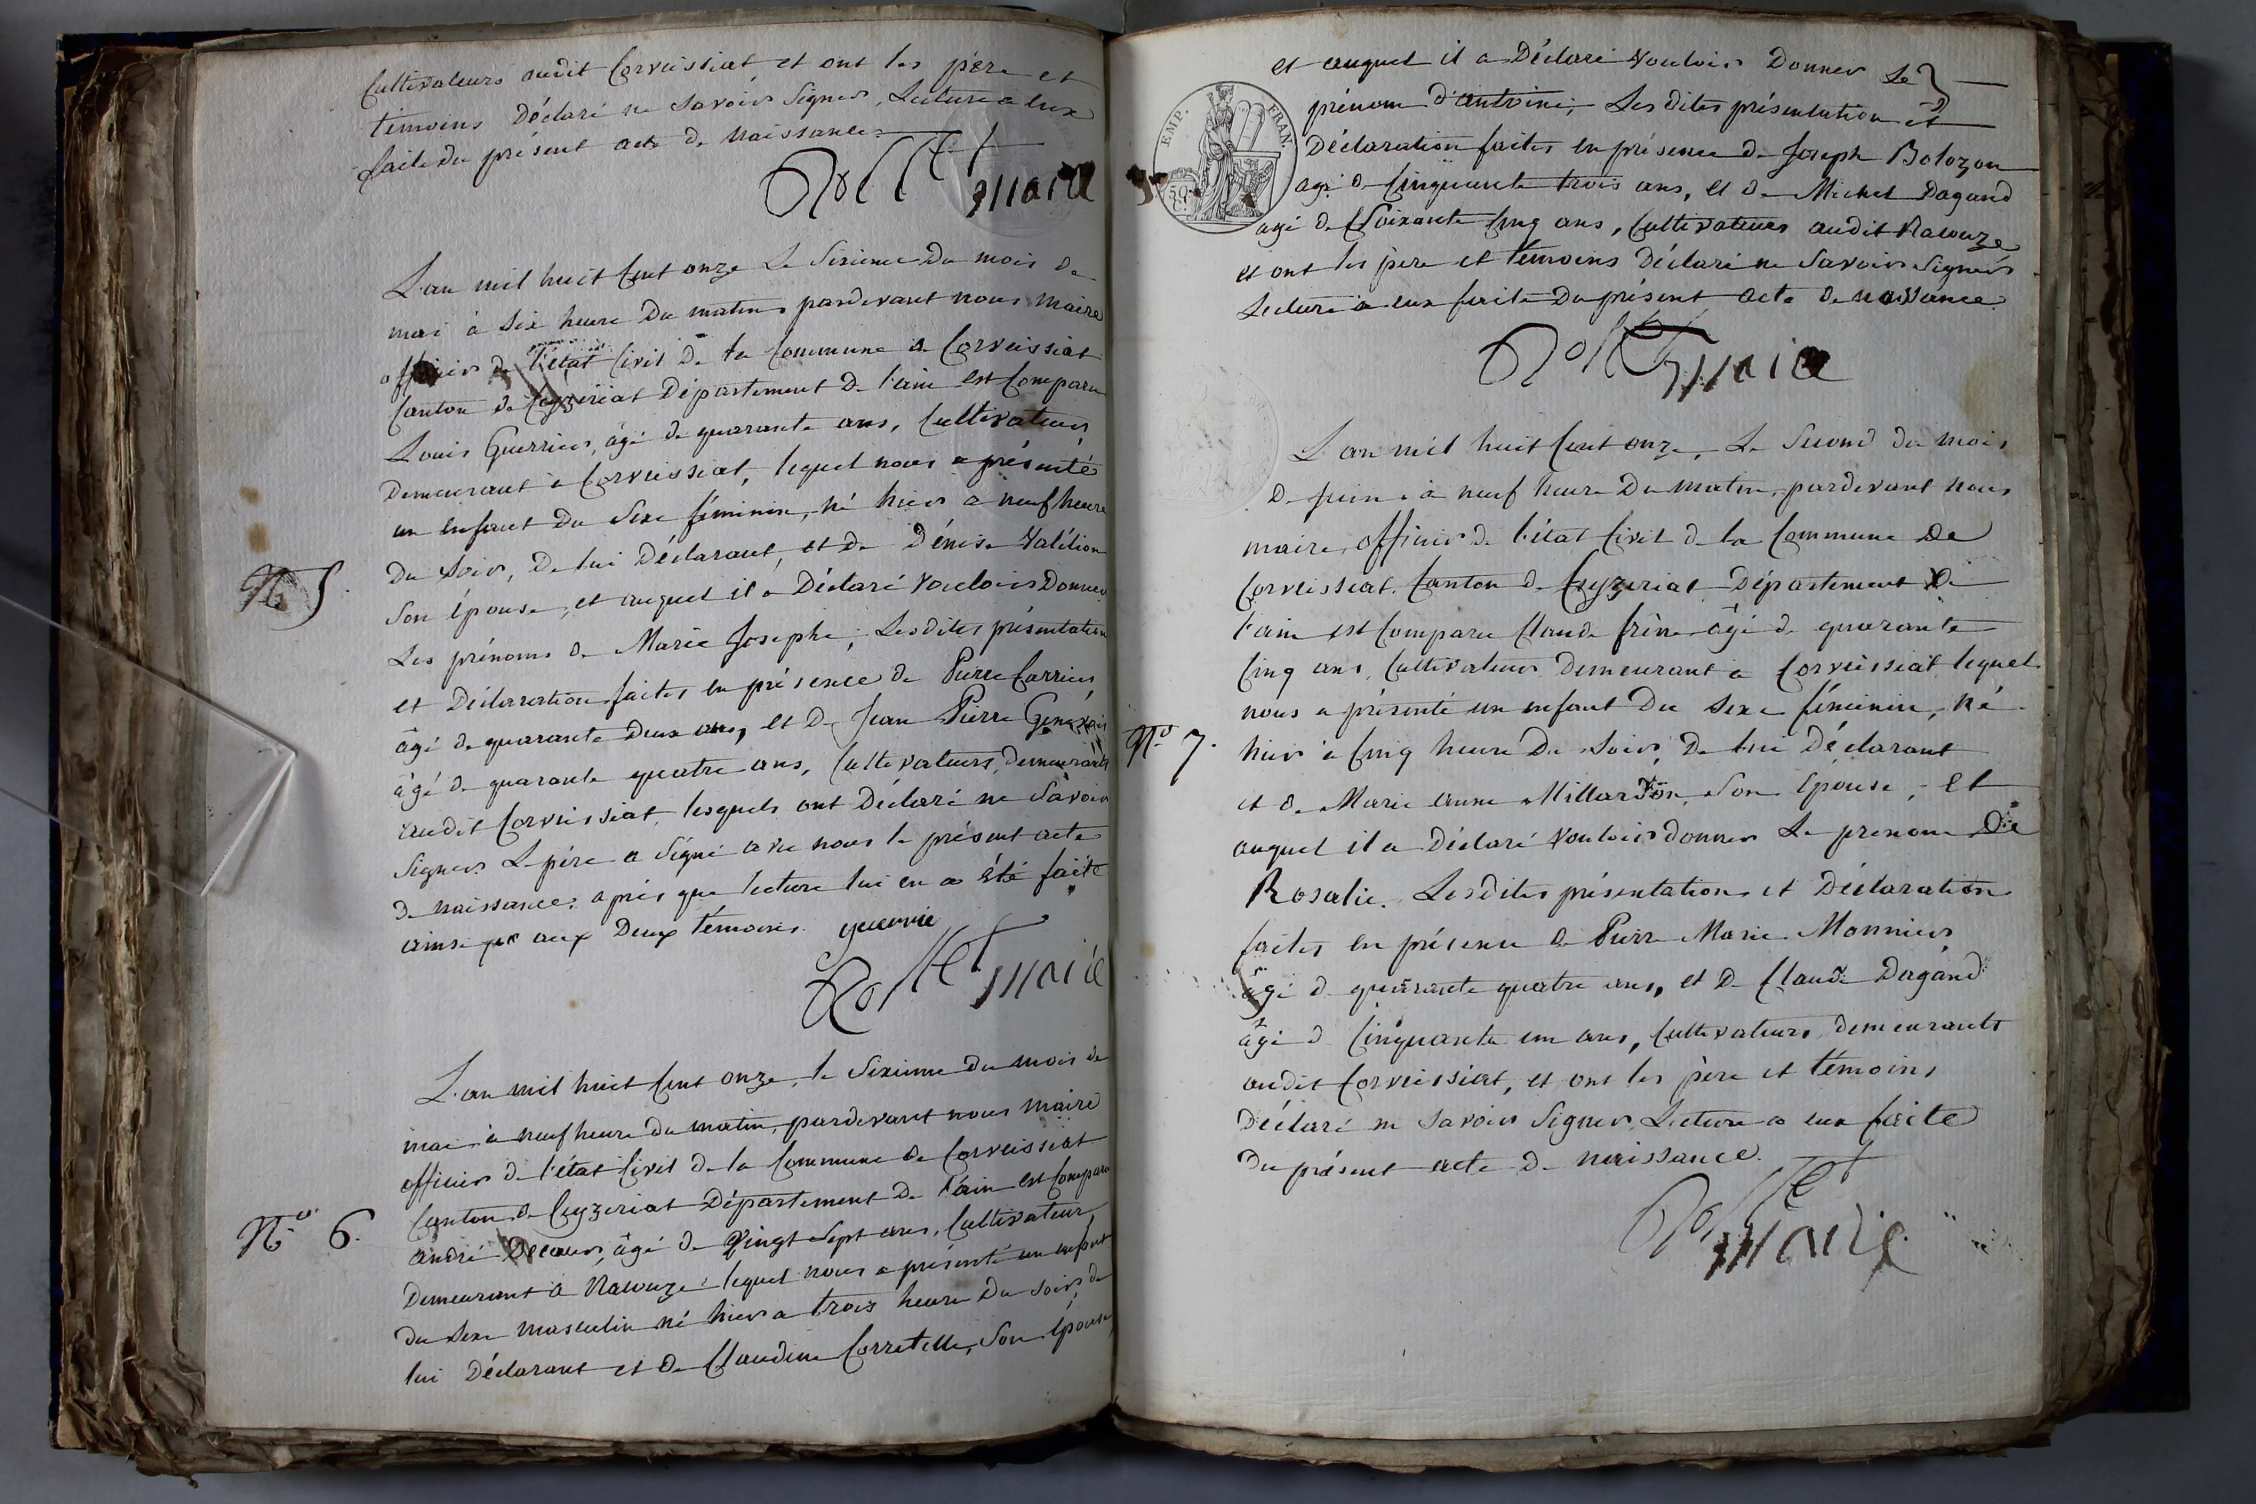 Cultivateurs audit Corveissiat et ont les père et
témoins Déclaré ne Savoir Signer, Lecture a eux
faite du présent acte de naissance.
Rollet maire
L'an mil huit Cent onze Le Sixieme Du mois de
mai à Six heure Du matin pardevant nous maire
officier de l'état Civil De la Commune de Corveissiat
Canton de Ceyzeriat Département De l'ain est Comparu
Louis Guerrier, âgé de quarante ans, Cultivateur
Demeurant à Corveissiat, lequel nous a présenté
un Enfant Du Sexe féminin, né hier a neuf heure
Du Soir, De lui Déclarant, et De Dénise Valélion
N° 5.
Son Épouse, et auquel il a Déclaré Vouloir Donner
Les prénoms de Marie Josephe; Lesdites présentation
et Déclaration faites en présence de Pierre Carrier
âgé de quarante Deux ans, et De Jean Pierre
âgé de quarante quatre ans, Cultivateurs, demeurants
audit Corveissiat lesquels ont Déclaré ne Savoir
Signer. Le père a Signé avec nous le présent acte
De naissance, après que lecture lui en a été faite
ainsi que aux Deux témoins. guerrie
Rollet maire
L'an mil huit Cent onze, le Sixieme Du mois de
mai à neuf heure du matin, pardevant nous maire
officier de l'état Civil de la Commune de Corveissiat
Canton de Ceyzeriat Département De l'ain est Comparu
N° 6.
andré Decoeur, âgé de Vingt Sept ans, Cultivateur
Demeurant à Racouze lequel nous a présenté un enfant
Du Sexe masculin né hier a trois heure Du Soir, de
lui Déclarant et de Claudine Corretelle, Son Épouse,
et auquel il a Déclaré Vouloir Donner Le
prénom D'antoine; Les dites présentation et
EMP. FRAN.
50 C.
Déclaration faites en présence de Joseph Bolozon
agé de Cinquante trois ans, et De Michel Dagand
agé de Soixante Cinq ans, Cultivateurs audit Racouze
et ont les père et témoins Déclaré ne Savoir Signer
Lecture à eux faite Du présent acte de naissance.
Rollet maire
L'an mil huit Cent onze, Le Second du mois
De juin à neuf heure Du matin, pardevant nous
maire, officier de l'état Civil de la Commune De
Corveissiat Canton de Ceyzeriat Département De
l'ain est Comparu Claude frène âgé de quarante
Cinq ans, Cultivateur Demeurant a Corveissiat lequel
nous a présenté un enfant Du Sexe féminin, né
N° 7.
hier à Cinq heure Du Soir, De lui Déclarant
et de Marie anne Millardon, Son Épouse, et
auquel il a Déclaré Vouloir donner Le prenom De
Rosalie. Lesdites présentation et Déclaration
faites en présence de Pierre Marie Monnier
âgé de quarante quatre ans, et De Claude Dagand
âgé de Cinquante un ans, Cultivateurs demeurants
audit Corveissiat, et ont les père et témoins
Déclaré ne Savoir Signer, Lecture a eux faite
Du présent acte De naissance.
Rollet
maire